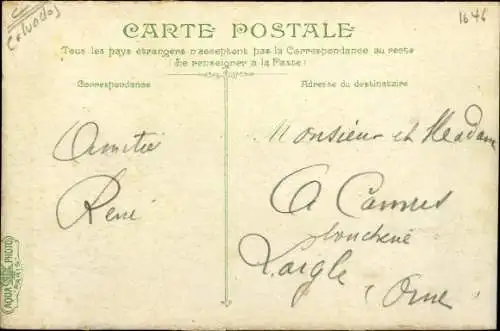 Calvados
1646
CARTE POSTALE
Tous les pays étrangers n'acceptent pas la Correspondance au recto
(Se renseigner à la Poste)
Correspondance
Adresse du destinataire
Amitié
René
Monsieur et Madame
A Camus
boucherie
Laigle
(Orne
AQUA PHOTO
PARIS